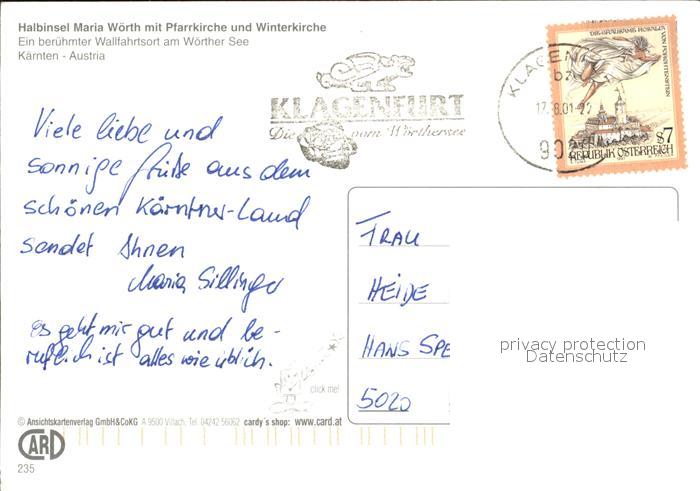 Halbinsel Maria Wörth mit Pfarrkirche und Winterkirche
Ein berühmter Wallfahrtsort am Wörther See
Kärnten - Austria
KLAGENFURT
Die Rose vom Wörthersee
KLAGEN
17.8.01-22
902
DIE GRAUSAME ROSALIA
VON FORCHTENSTEIN
S7
REPUBLIK ÖSTERREICH
Viele liebe und
sonnige Grüße aus dem
schönen Kärntner-Land
sendet Ihnen
Maria Sillinger
es geht mir gut und be-
ruflich ist alles wie üblich.
FRAU
HEIDE
HANS SPE
5020
privacy protection
Datenschutz
click me!
© Ansichtskartenverlag GmbH&CoKG A 9500 Villach, Tel. 04242 56062 cardy´s shop: www.card.at
CARD
235